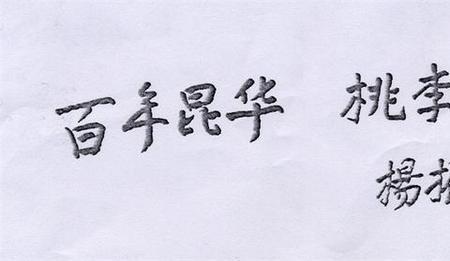 百年昆华 桃李
楊